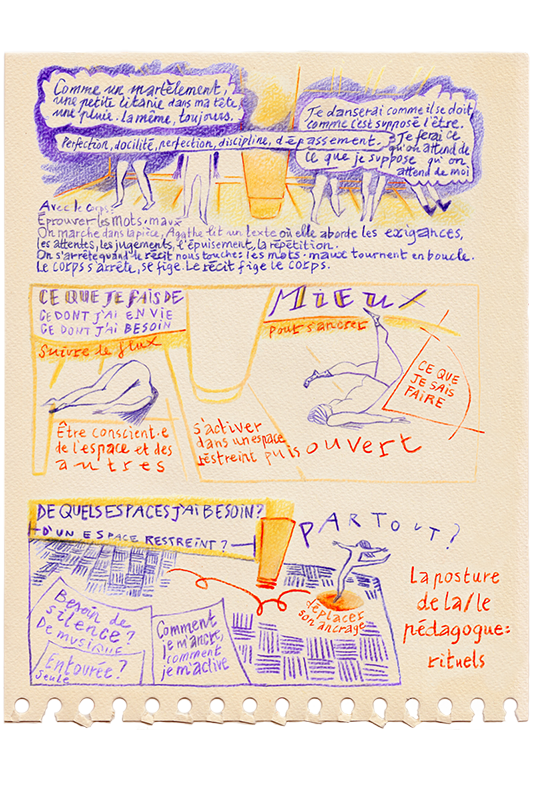 Comme un martèlement,
une petite litanie dans ma tête,
une pluie. la même, toujours.
Je danserai comme il se doit,
comme c'est supposé l'être.
Je ferai ce
qu'on attend de
ce que je suppose qu'on
attend de moi
Perfection, docilité, perfection, discipline, dépassement.
Avec le corps:
Éprouver les Mots·maux
On marche dans la pièce, Agathe lit un texte où elle aborde les exigences,
les attentes, les jugements, l'épuisement, la répétition.
On s'arrête quand le récit nous touche: les mots·maux tournent en boucle.
Le corps s'arrête, se fige. Le récit fige le corps.
CE QUE JE FAIS DE MIEUX
CE DONT J'AI ENVIE
CE DONT J'AI BESOIN
Pour s'ancrer
Suivre le flux
CE QUE
JE SAIS
FAIRE
Être conscient.e
de l'espace et des
autres
s'activer
dans un espace
restreint puis ouvert
DE QUELS ESPACES J'AI BESOIN?
D'UN ESPACE RESTREINT?
PARTOUT?
Besoin de
silence?
De musique
Entourée?
Seule
Comment
je m'ancre,
comment
je m'active
déplacer
son ancrage
La posture
de la/le
pédagogue:
rituels